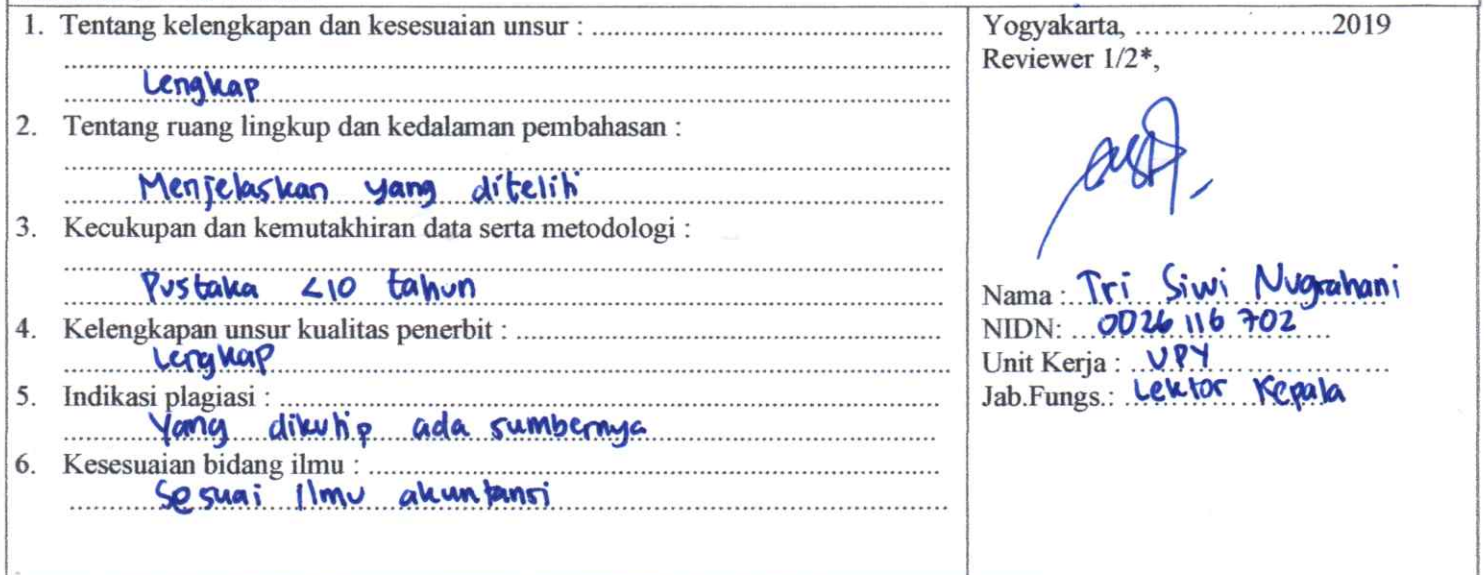 1. Tentang kelengkapan dan kesesuaian unsur : ....................................................
Lengkap
2. Tentang ruang lingkup dan kedalaman pembahasan :
Menjelaskan yang diteliti
3. Kecukupan dan kemutakhiran data serta metodologi :
Pustaka <10 tahun
4. Kelengkapan unsur kualitas penerbit : ....................................................
Lengkap
5. Indikasi plagiasi : ....................................................
Yang dikutip ada sumbernya
6. Kesesuaian bidang ilmu : ....................................................
Sesuai Ilmu akuntansi
Yogyakarta, ........................2019
Reviewer 1/2*,
Nama : Tri Siwi Nugrahani
NIDN: 0026 116 702
Unit Kerja : UPY
Jab.Fungs.: Lektor Kepala